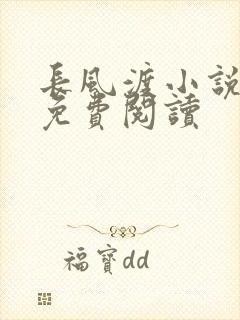 長風渡小說
免費閱讀
福寶dd